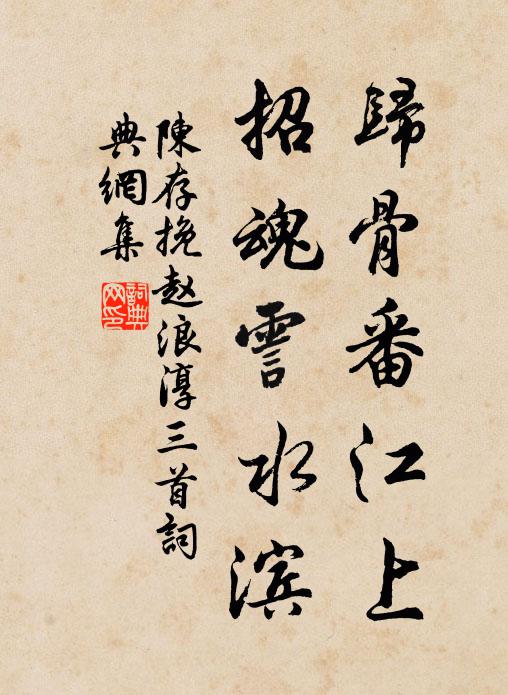 歸骨番江上
招魂霅水滨
陳存挽赵浪淳三首詞
典網集
詞典
网印